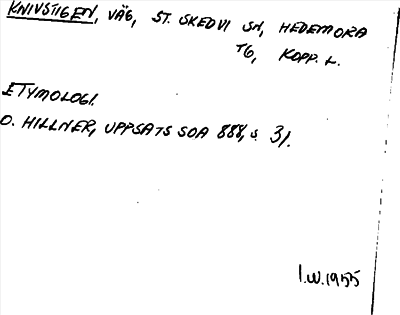 KNIVSTIGEN, VÄG, ST. SKEDVI SN, HEDEMORA
TG, KOPP. L.
ETYMOLOGI.
O. HILLNER, UPPSATS SOA 888, s. 31.
I.W. 1955